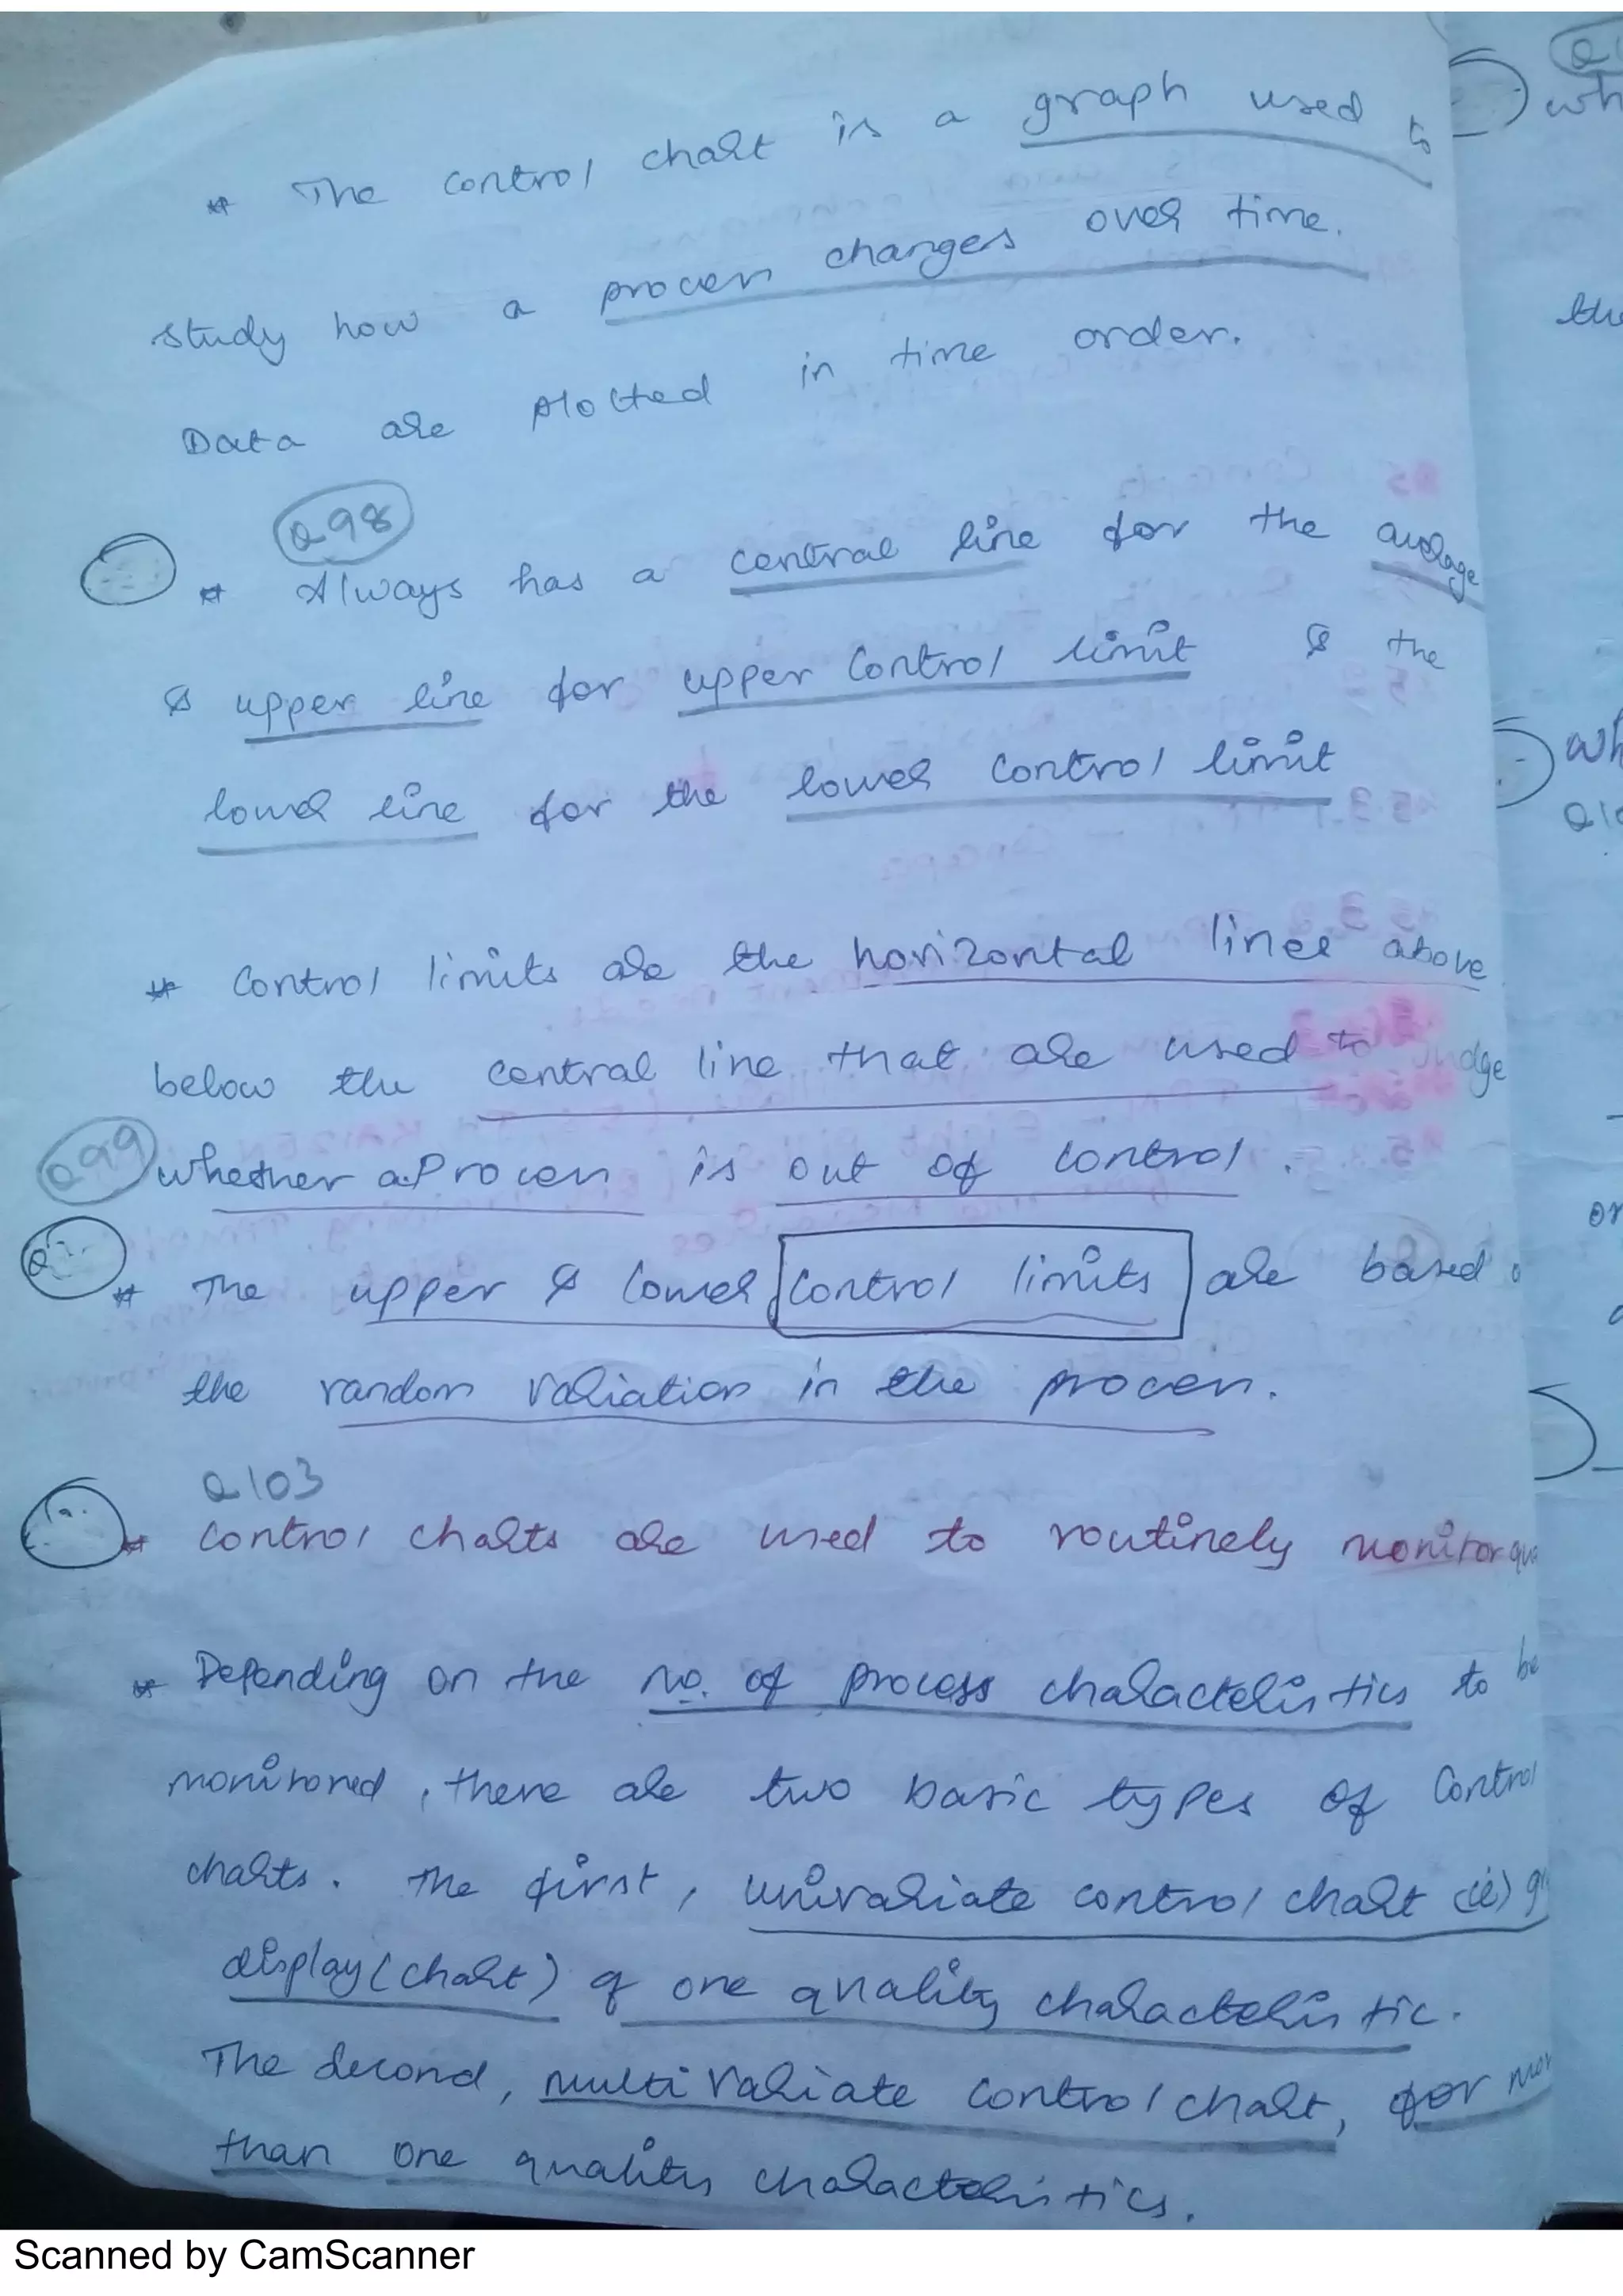 * The control chart is a graph used to
study how a process changes over time.
Data are plotted in time order.
Q98
* Always has a central line for the average
& upper line for upper control limit & the
lower line for the lower control limit
* Control limits are the horizontal lines above
below the central line that are used to judge
Q99 whether a process is out of control.
* The upper & lower control limits are based
the random variation in the process.
Q103
* Control charts are used to routinely monitor
* Depending on the no. of process characteristics to be
monitored, there are two basic types of control
charts. The first, univariate control chart (ie)
display (chart) of one quality characteristic.
The second, multivariate control chart, for
than one quality characteristics.
Scanned by CamScanner